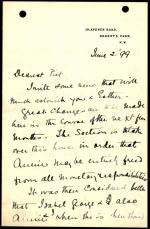 GLOVERS ROAD,
REGENT'S PARK,
N.W.
June 2. 99
Dearest Pet
I write some news that will
much astonish you &
Great changes are to be made
here in the course of the next few
months. The Section is to take
over this house in order that
Annie may be entirely freed
from all monetary responsibilities
It was then considered better
that Isabel George & I also
Annie when she is here should